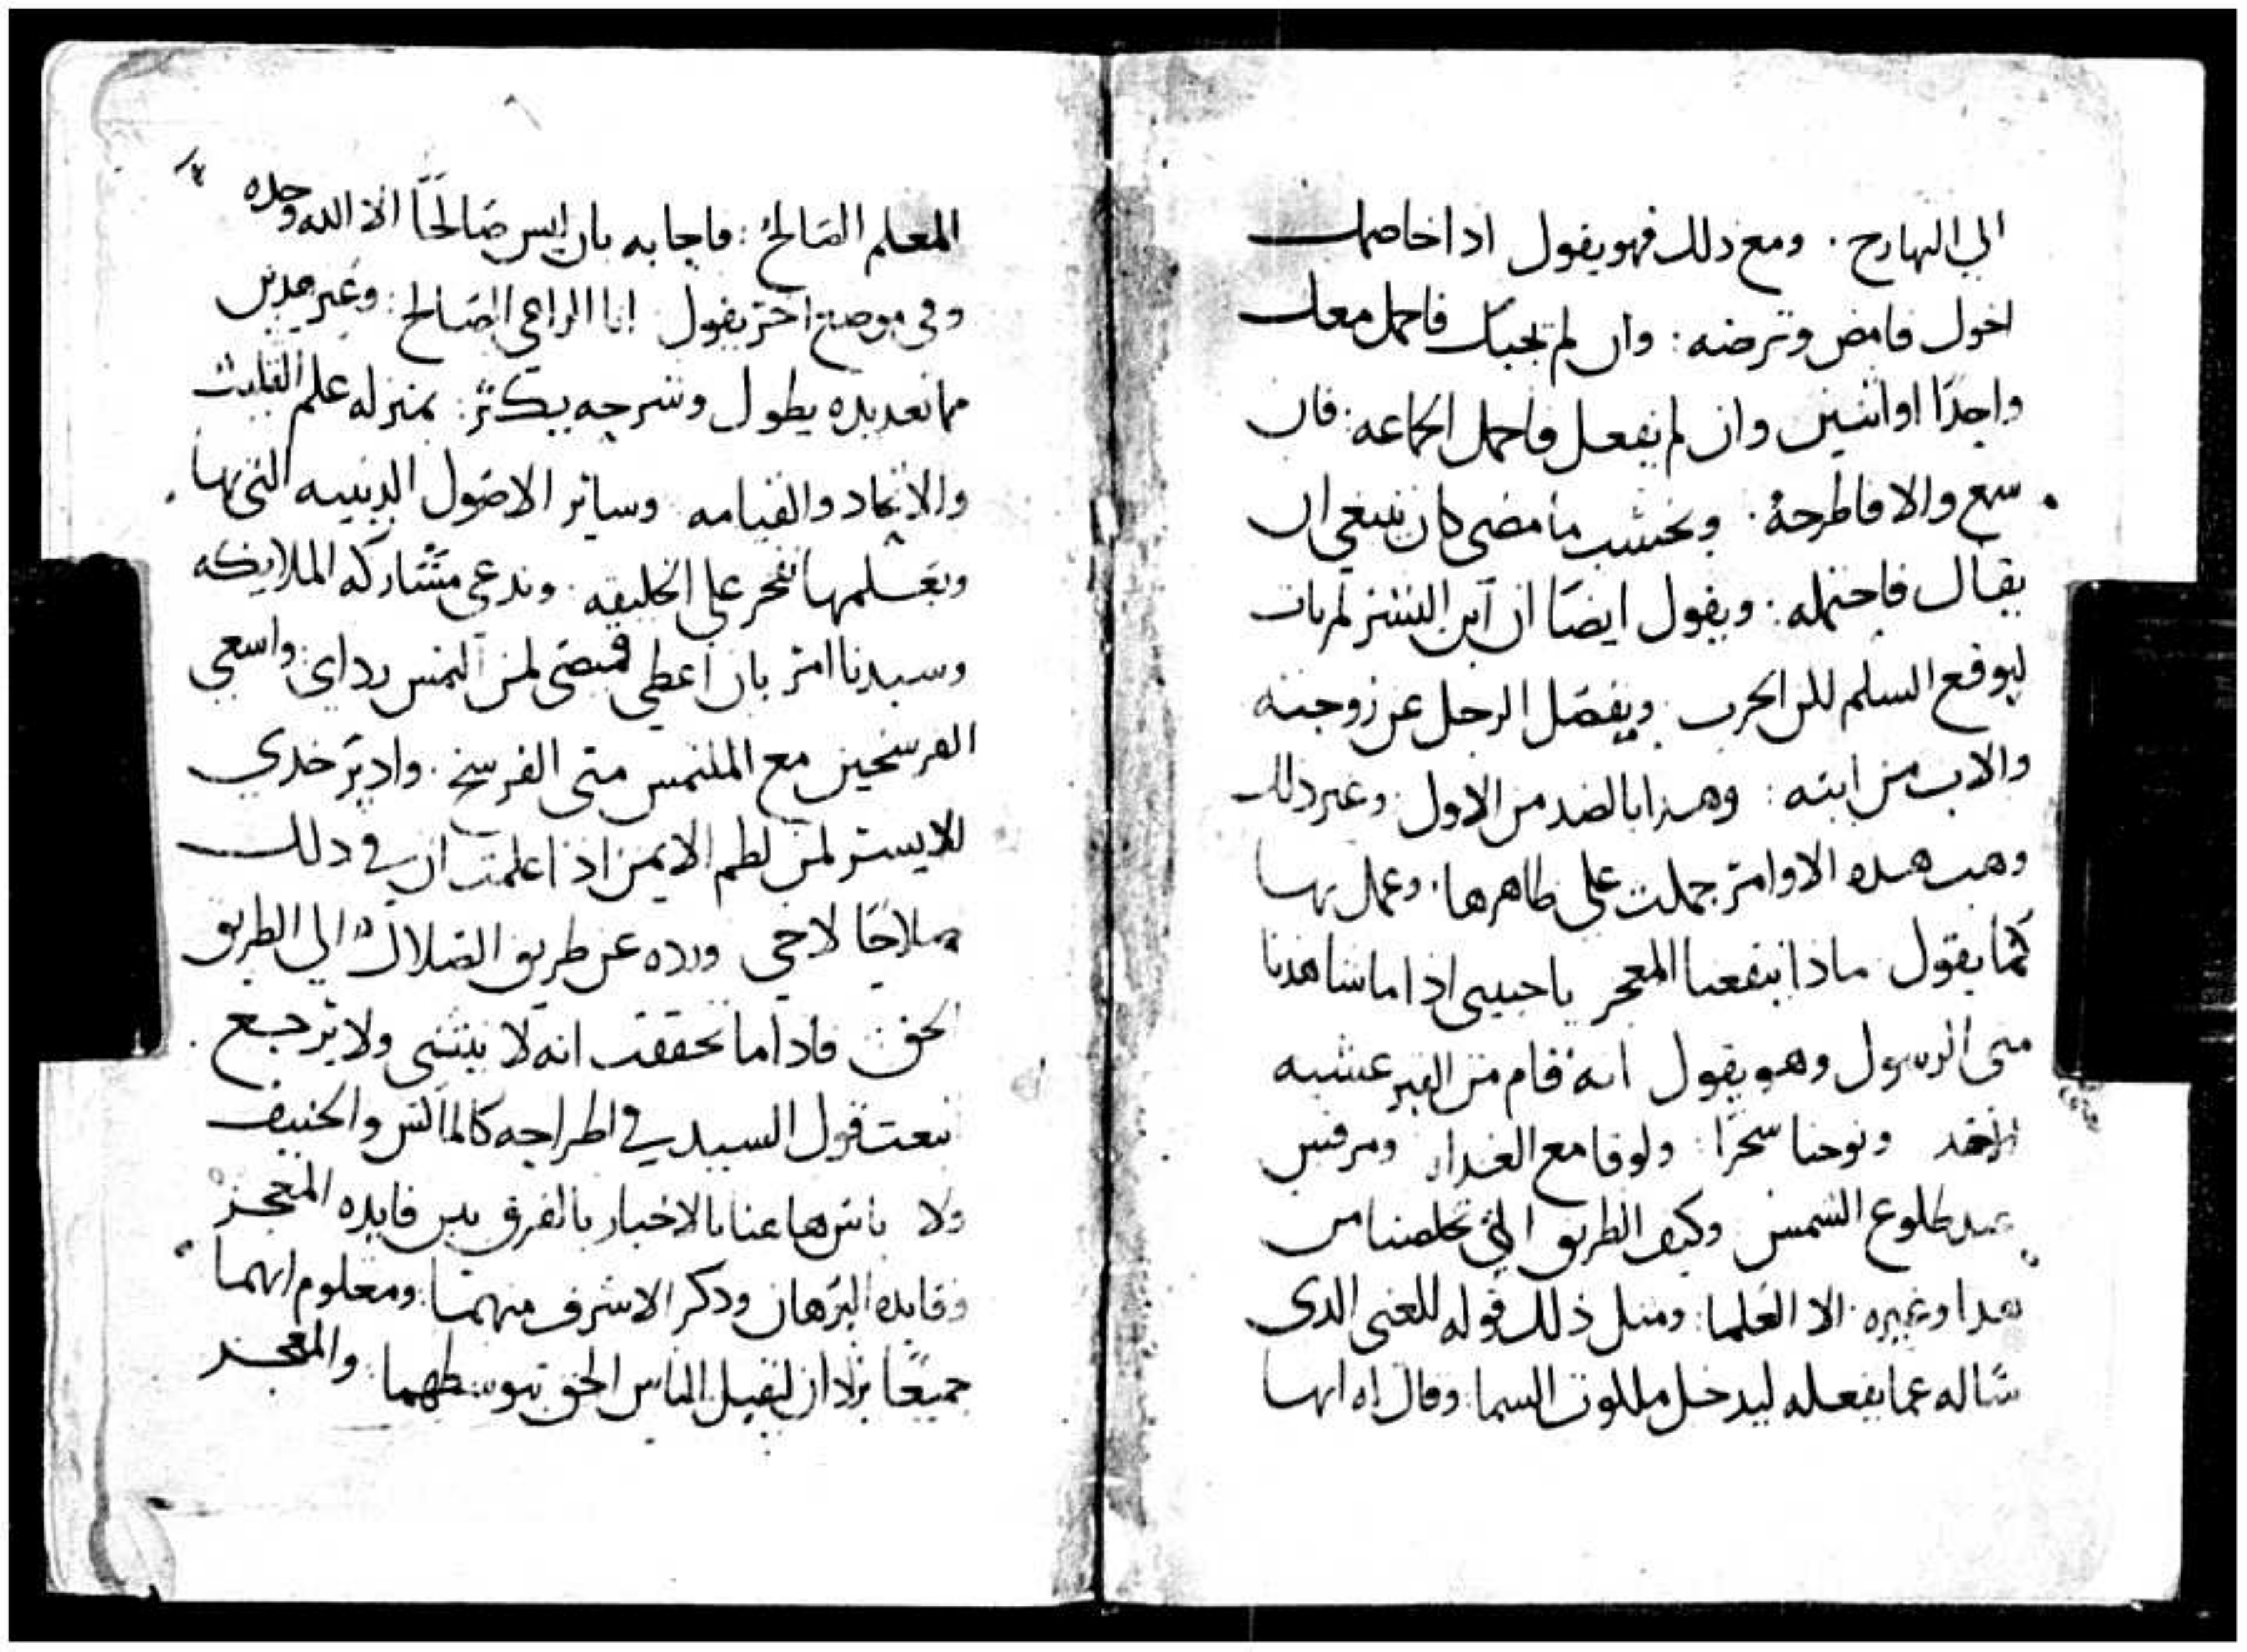 الي البهارج . ومع دلك فهو يقول ادا خاصمك
اخوك فامض وترضه : وان لم يجبك فاحمل معك
واحدًا او اثنين وان لم يفعل فاحمل الجماعه : فان
سمع والا فاطرحهُ . وبحسب ما مضى كان ينبغي ان
يقال فاحتمله : ويقول ايضًا ان ابن البشر لم يات
ليوقع السلم لكن الحرب . ويفصل الرجل عن زوجته
والاب من ابنه : وهذا بالضد من الاول . وغير دلك
وهب هده الاوامر حملت على ظاهرها . وعمل بها
كما يقول ماذا ينفعنا المعجز يا حبيبى ادا ما شاهدنا
متى الرسول وهو يقول انه قام من القبر عشيه
الاحد ويوحنا سحرًا : ولوقا مع الغداه ومرقس
عند طلوع الشمس وكيف الطريق التي تخلصنا من
هدا وغيره . الا العلما : ومثل ذلك قوله للغنى الدى
ساله عما يفعله ليدخل ملكوت السما : وقال له ايها
المعلم الصالح : فاجابه بان ليس صالحًا الا الله وحده
وفي موضع اخر يقول انا الراعي الصالح : وغير هدين
مما تعديده يطول وشرحه يكثر : بمنزله علم التثليث
والاتحاد والقيامه وسائر الاصول الدينيه التي بها
وبعلمها نفخر على الخليقه . وندعى مشاركه الملايكه
وسيدنا امر بان اعطي قميصى لمن التمس رداى : واسعى
الفرسخين مع الملتمس متى الفرسخ . وادير خدي
الايسر لمن لطم الايمن اذا علمت ان في دلك
صلاحًا لاخى ورده عن طريق الضلال الي الطريق
الحق فادا ما تحققت انه لا ينثنى ولا يرجع
تبعت قول السيد في اطراحه كالماكس والحنيف
ولا باس هاهنا بالاخبار بالفرق بين فايده المعجز
وفايده البرهان ودكر الاشرف منهما : ومعلوم انهما
جميعًا يرادان ليقبل الناس الحق بتوسطهما : والمعجز